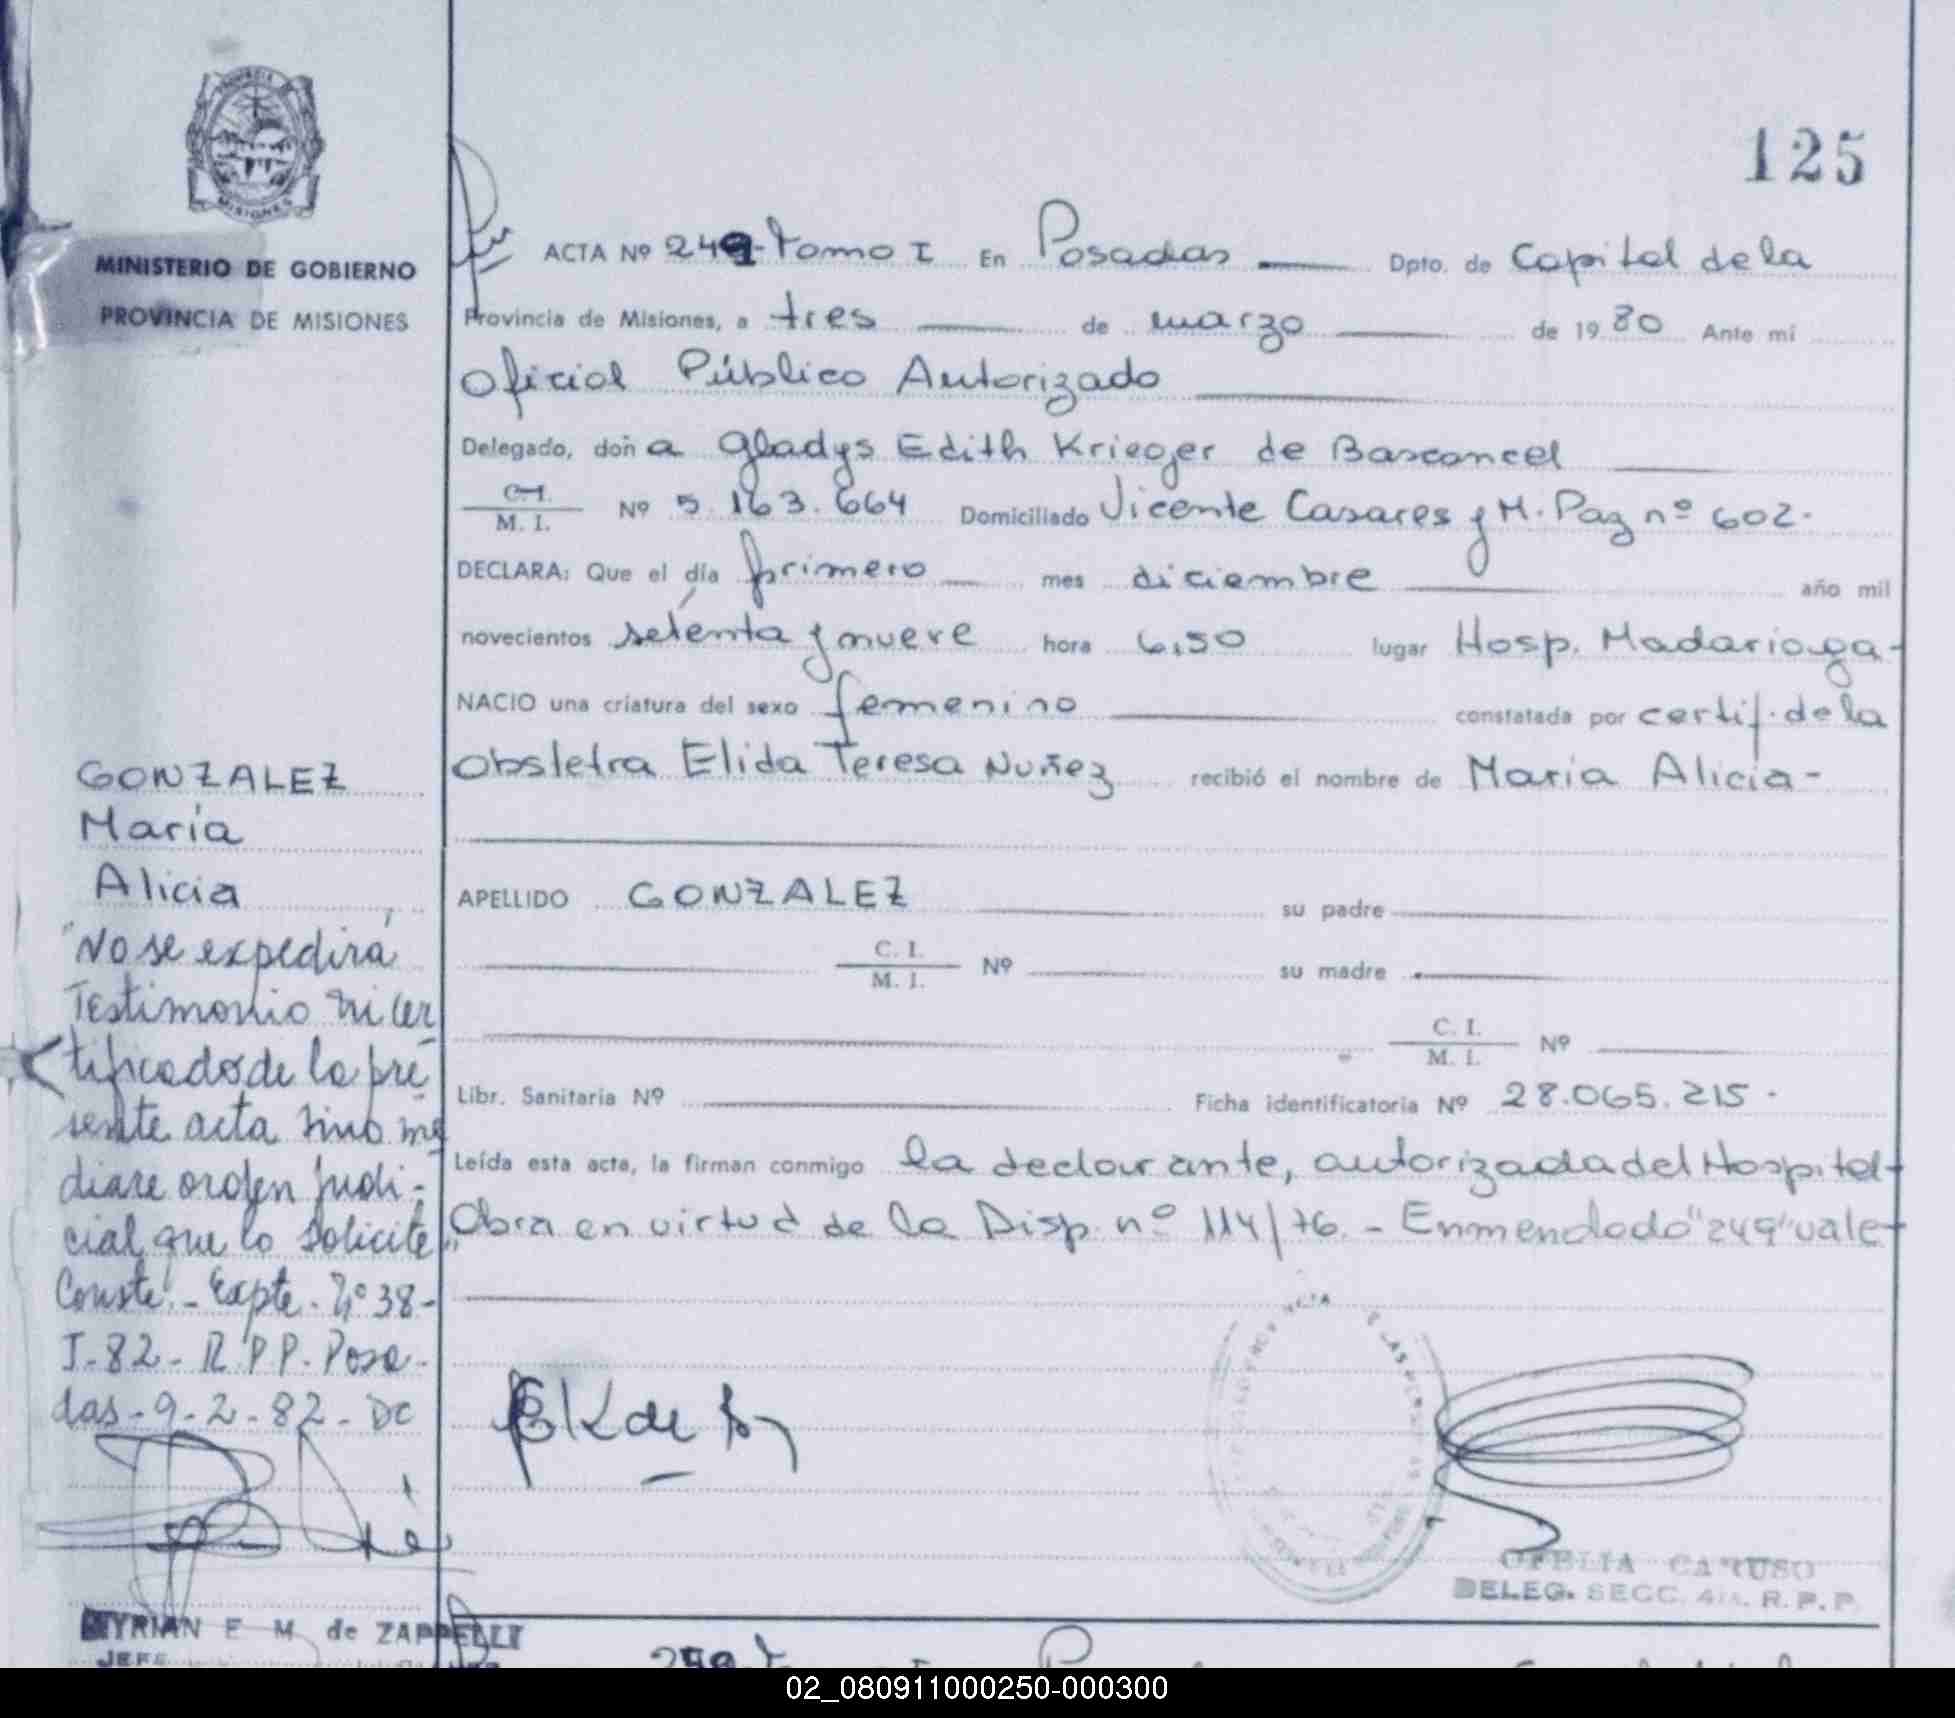 125
MINISTERIO DE GOBIERNO
PROVINCIA DE MISIONES
ACTA Nº 249-Tomo I En Posadas Dpto. de Capital de la
Provincia de Misiones, a tres de marzo de 1980 Ante mí
Oficial Público Autorizado
Delegado, doña Gladys Edith Krieger de Basconcel
C.I. / M. I. Nº 5.163.664 Domiciliado Vicente Casares y M. Paz nº 602.
DECLARA: Que el día primero mes diciembre año mil
novecientos setenta y nueve hora 6,50 lugar Hosp. Madariaga-
NACIO una criatura del sexo femenino constatada por certif. de la
Obstetra Elida Teresa Nuñez recibió el nombre de María Alicia-
APELLIDO GONZALEZ su padre
C. I. / M. I. Nº su madre
C. I. / M. I. Nº
Libr. Sanitaria Nº Ficha identificatoria Nº 28.065.215.
Leída esta acta, la firman conmigo la declarante, autorizada del Hospital-
Obra en virtud de la Disp. nº 114/76.- Enmendado "249" vale-
GONZALEZ
María
Alicia
"No se expedirá
Testimonio ni cer
tificados de la pre
sente acta sino me
diare orden judi-
cial que lo solicite"
Conste.- Expte. Nº 38-
J-82- R.P.P. Posa-
das-9-2-82- DC
E. M. de ZAPPELLI
JEFE
OFELIA CARUSO
DELEG. SECC. 4ta. R. P. P.
02_080911000250-000300